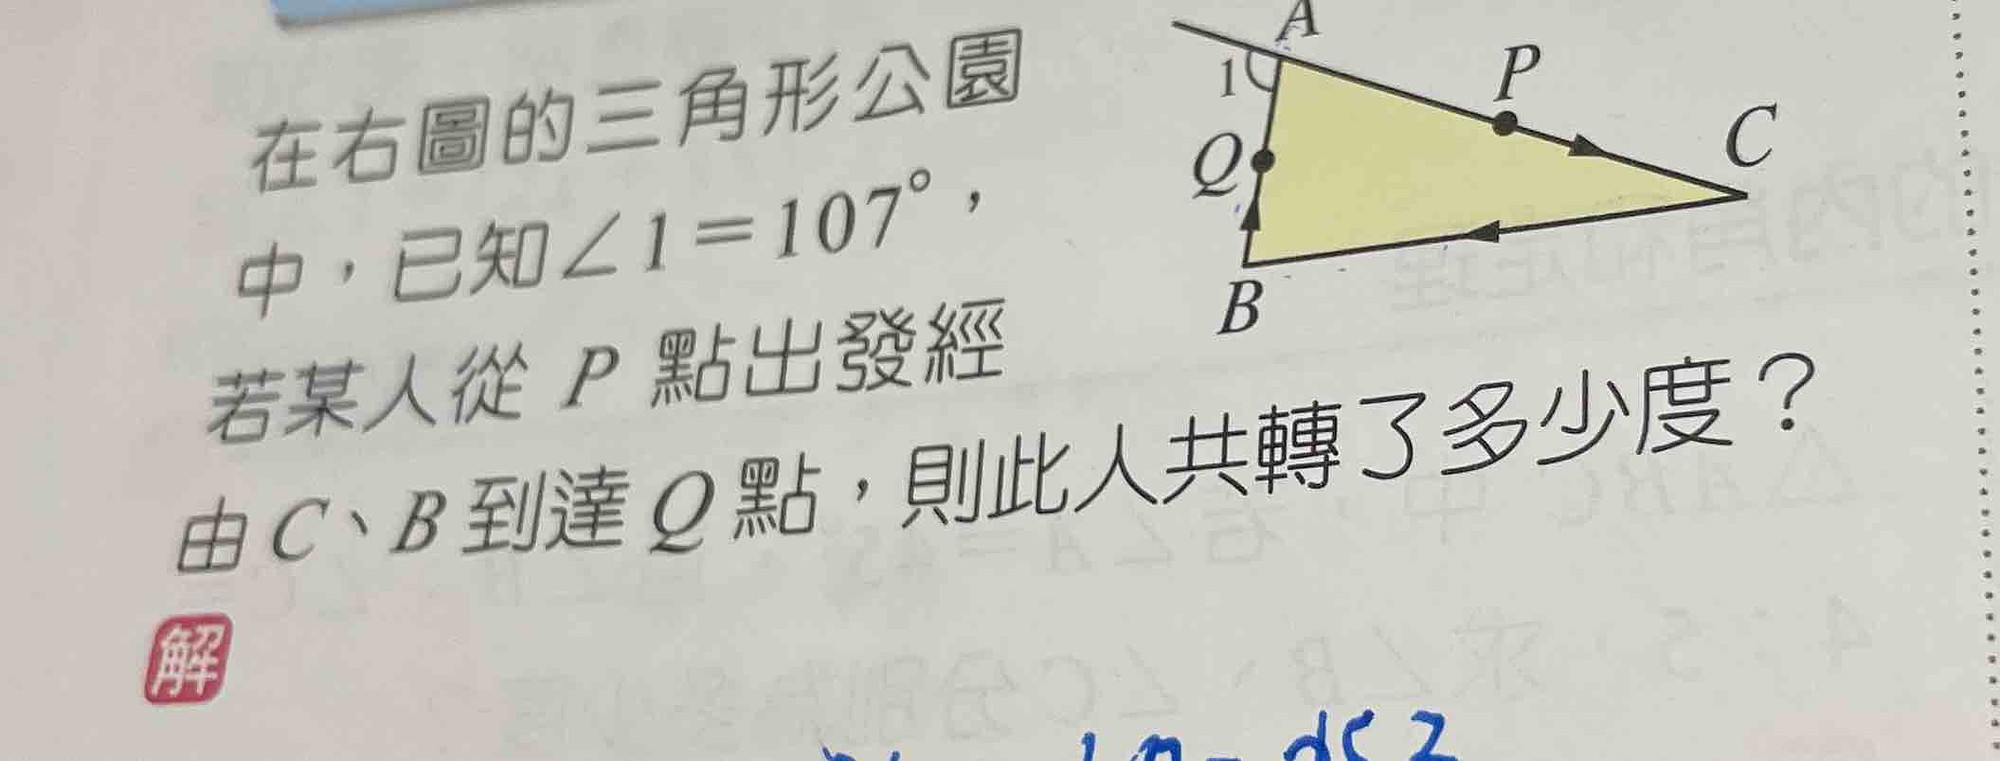 在右圖的三角形公園
中，已知∠1=107°，
若某人從 P 點出發經
由C、B到達Q點，則此人共轉了多少度？
解
A
P
1
C
Q
B